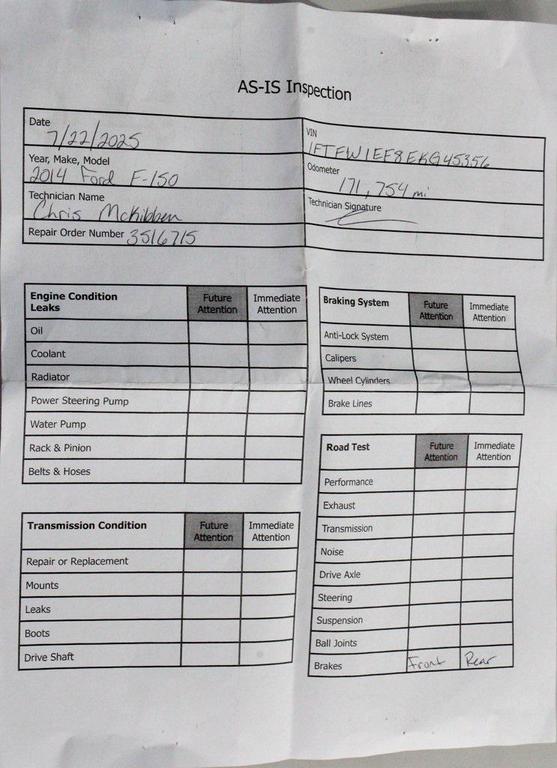 AS-IS Inspection
Date
7/22/2025
VIN
1FTFW1EF8EKG45356
Year, Make, Model
2014 Ford F-150
Odometer
171,754 mi
Technician Name
Chris McKibben
Technician Signature
Repair Order Number 3516715
Engine Condition
Leaks
Future
Attention
Immediate
Attention
Oil
Coolant
Radiator
Power Steering Pump
Water Pump
Rack & Pinion
Belts & Hoses
Transmission Condition
Future
Attention
Immediate
Attention
Repair or Replacement
Mounts
Leaks
Boots
Drive Shaft
Braking System
Future
Attention
Immediate
Attention
Anti-Lock System
Calipers
Wheel Cylinders
Brake Lines
Road Test
Future
Attention
Immediate
Attention
Performance
Exhaust
Transmission
Noise
Drive Axle
Steering
Suspension
Ball Joints
Brakes Front Rear